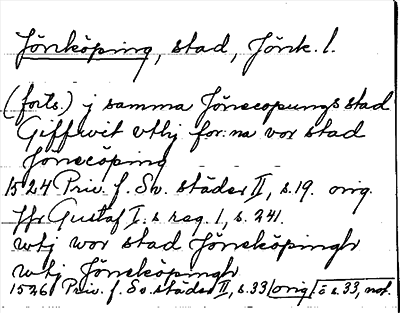 Jönköping, stad, Jönk. l.
(forts.) j samma Jönecopungs stad
Giffwit vthj for:na vor stad
Jönecöping
1524 Priv. f. Sv. städer II, s. 19. orig.
Jfr Gustaf I:s reg. 1, s. 241.
wthj wor stad Jönsköpingh
wthj Jönsköpingh
1526 Priv. f. Sv. städer II, s. 33 orig = s. 33, not.